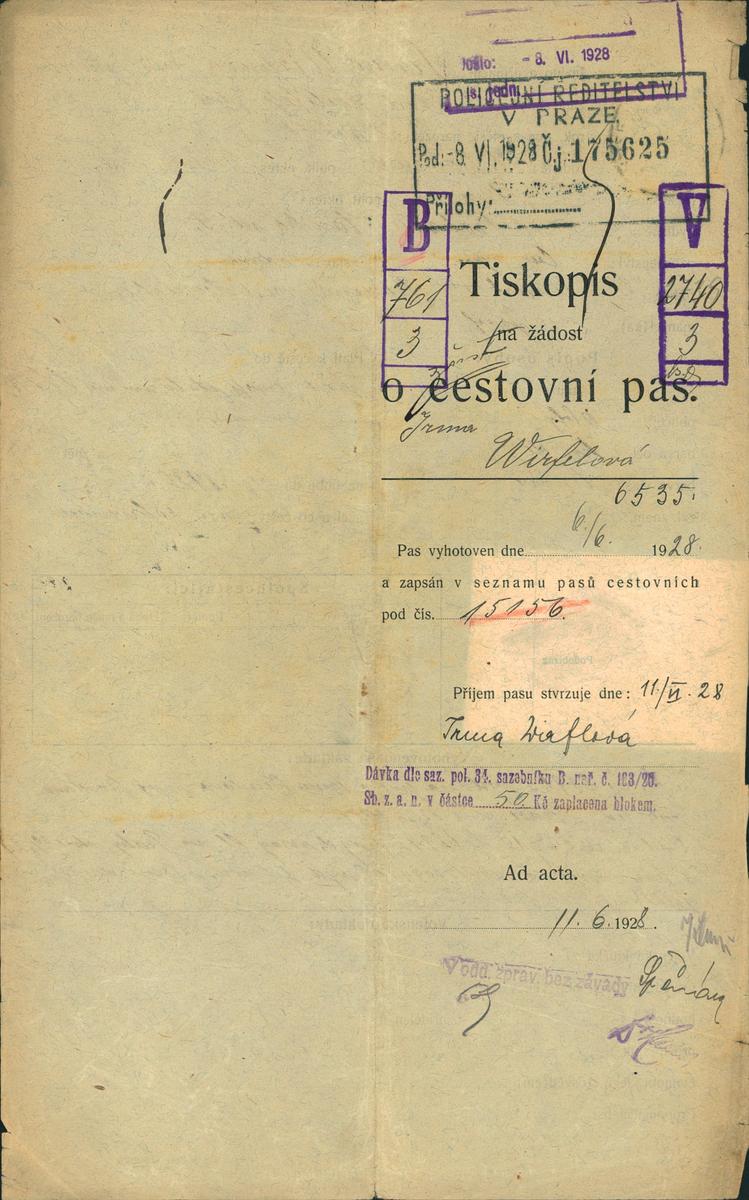 Došlo: - 8. VI. 1928
POLICEJNÍ ŘEDITELSTVÍ
V PRAZE.
Pod: -8. VI. 1928 Čj. 175625
Přílohy:
B
761
3
V
2740
3
Tiskopis
na žádost
o cestovní pas.
Irma
Wirfelová
6535.
Pas vyhotoven dne 6/6. 1928.
a zapsán v seznamu pasů cestovních
pod čís. 15156.
Příjem pasu stvrzuje dne: 11/VI. 28
Irma Wirflová
Dávka dle saz. pol. 34. sazebníku B. nař. č. 163/26.
Sb. z. a. n. v částce 50 Kč zaplacena blokem.
Ad acta.
11. 6. 1928.
V odd. zpráv. bez závady